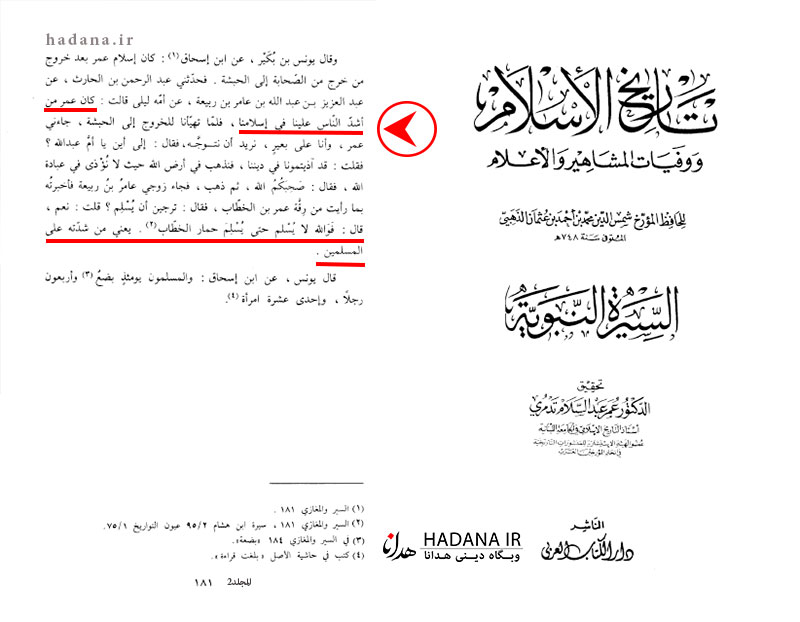 hadana.ir
وقال يونس بن بُكَيْر ، عن ابن إسحاق (١) : كان إسلام عمر بعد خروج
من خرج من الصّحابة إلى الحبشة . فحدّثني عبد الرحمن بن الحارث ، عن
عبد العزيز بـن عبد الله بن عامر بن ربيعة ، عن أمّه ليلى قالت : كان عمر من
أشدّ النّاس علينا في إسلامنا ، فلمّا تهيّأنا للخروج إلى الحبشة ، جاءني
عمر ، وأنا على بعيرٍ ، نريد أن نتـوجّـه ، فقال : إلى أين يا أمَّ عبدالله ؟
فقلت : قد آذيتمونا في ديننا ، فنذهب في أرض الله حيث لا نُؤْذى في عبادة
الله ، فقال : صَحِبَكُمُ الله ، ثم ذهب ، فجاء زوجي عامرُ بنُ ربيعة فأخبرتُه
بما رأيت من رِقَّة عمر بن الخطّاب ، فقال : ترجين أن يُسْلِم ؟ قلت : نعم ،
قال : فَوَالله لا يُسْلم حتى يُسْلِمَ حمار الخطّاب (٢) . يعني من شدّته على
المسلمين .
قال يونس ، عن ابن إسحاق : والمسلمون يومئذٍ بضعُ (٣) وأربعون
رجلًا ، وإحدى عشرة امرأة (٤).
(١) السير والمغازي ١٨١ .
(٢) السير والمغازي ١٨١ ، سيرة ابن هشام ٩٥/٢ عيون التواريخ ٧٥/١.
(٣) في السير والمغازي ١٨٤ «بضعة».
(٤) كتب في حاشية الأصل «بلغت قراءة».
المجلد2 ١٨١
تاريخ الإسلام
ووفيات المشاهير والأعلام
للحافظ المؤرخ شمس الدين محمد بن أحمد بن عثمان الذهبي
المتوفى سنة ٧٤٨هـ
السيرة النبوية
تحقيق
الدكتور عمر عبد السلام تدمري
أستاذ التاريخ الإسلامي في الجامعة اللبنانية
عضو الهيئة الاستشارية للمنشورات التاريخية
في اتحاد المؤرخين العرب
الناشر
دار الكتاب العربي
HADANA IR
وبگاه دینی هدانا
هدانا